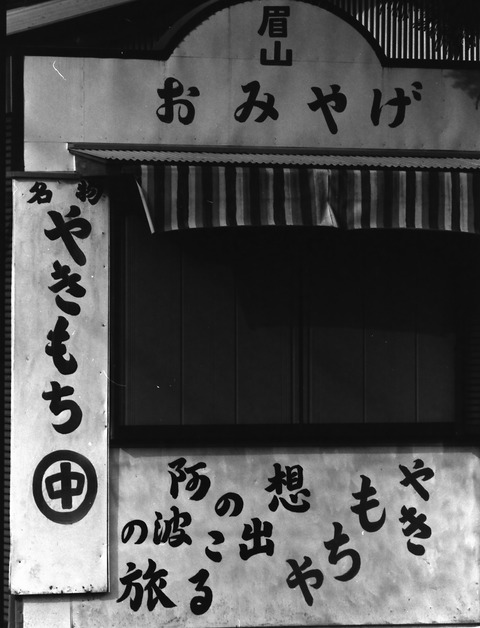 眉山
おみやげ
名物
やきもち
中
やき
もちや
想出
のこる
阿波
の旅